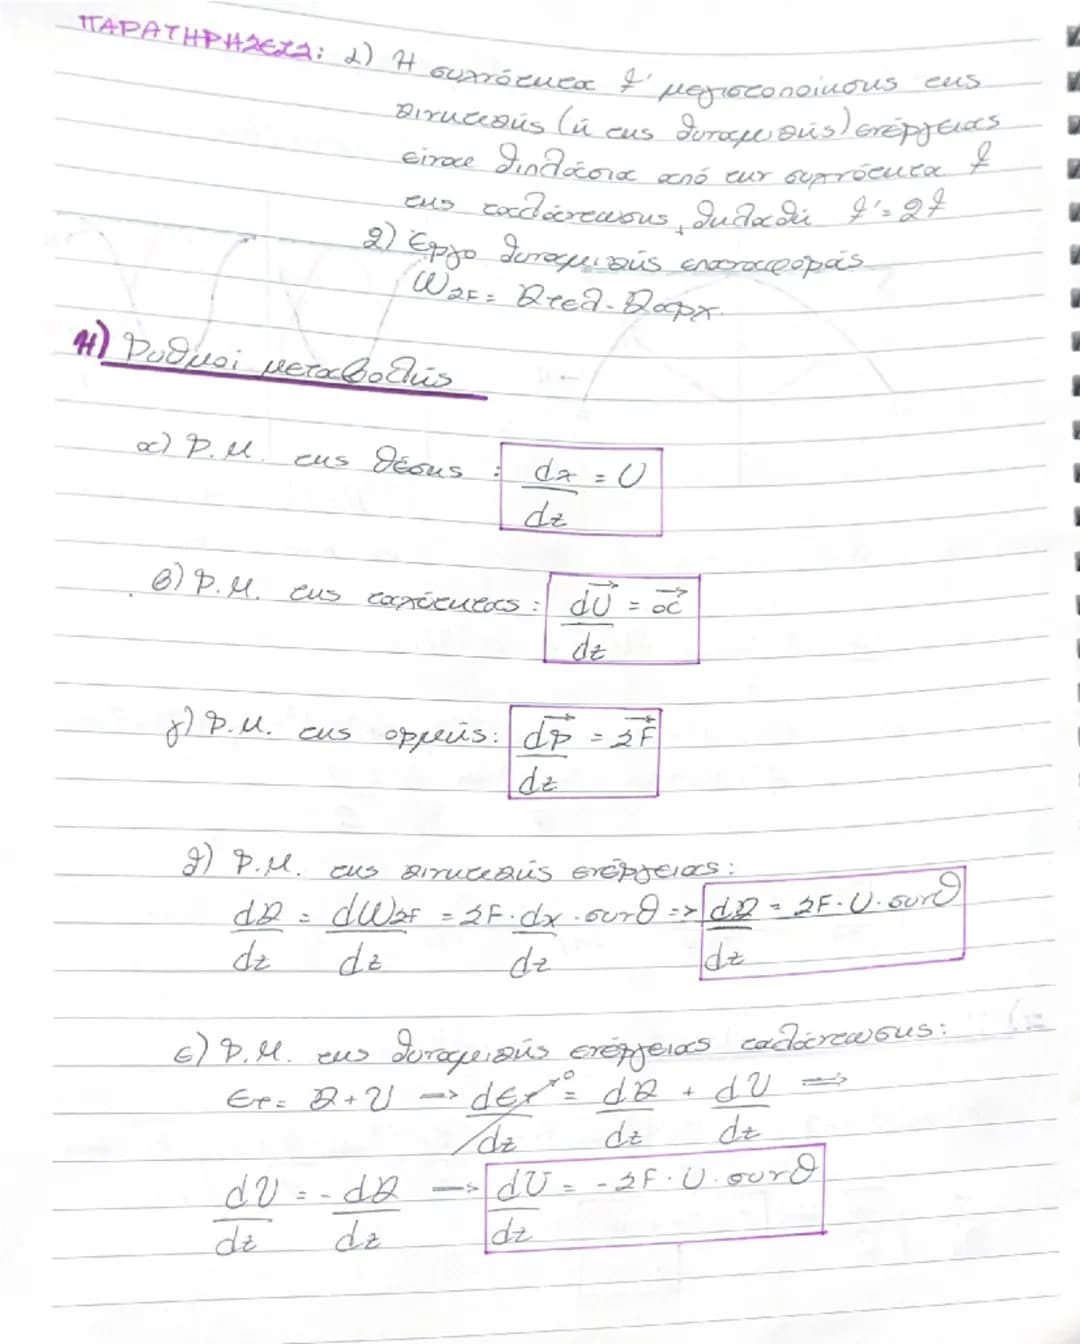 ΠΑΡΑΤΗΡΗΣΕΙΣ: 1) Η συχνότητα f' μεγιστοποίησης της
κινητικής (ή της δυναμικής) ενέργειας
είναι διπλάσια από την συχνότητα f
της ταλάντωσης, δηλαδή f' = 2f
2) Έργο δυναμικής επαναφοράς
WΣF = Κτελ - Καρχ
Η) Ρυθμοί μεταβολής
α) Ρ.Μ. της θέσης : dx/dt = υ
β) Ρ.Μ. της ταχύτητας : dυ⃗/dt = α⃗
γ) Ρ.Μ. της ορμής: dp⃗/dt = ΣF⃗
δ) Ρ.Μ. της κινητικής ενέργειας:
dK/dt = dWΣF/dt = ΣF·dx/dt·συνθ => dK/dt = ΣF·υ·συνθ
ε) Ρ.Μ. της δυναμικής ενέργειας ταλάντωσης:
Ετ = Κ + U => dΕτ/dt⁰ = dK/dt + dU/dt =>
dU/dt = - dK/dt => dU/dt = - ΣF·υ·συνθ